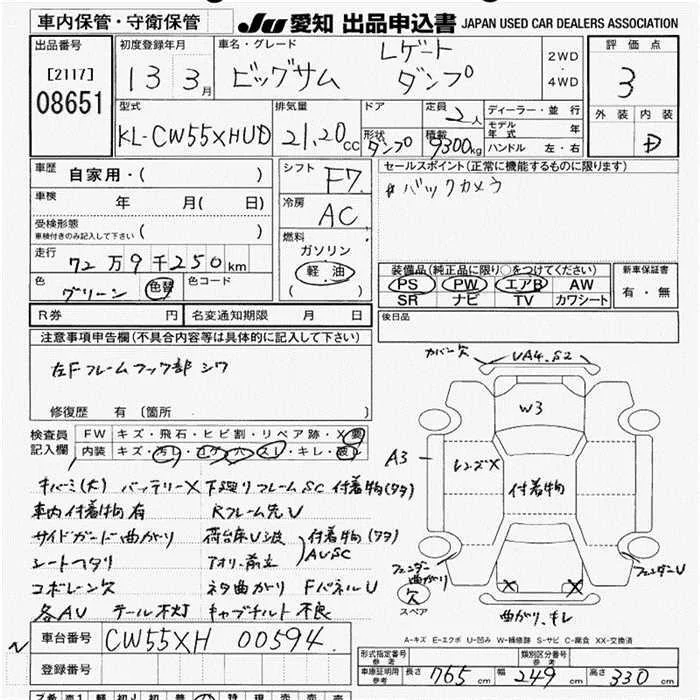 車内保管・守衛保管
JU 愛知 出品申込書 JAPAN USED CAR DEALERS ASSOCIATION
出品番号 初度登録年月 車名・グレード 評価点
[2117] 08651
13 3月
ビッグサム Lゲート ダンプ
2WD・4WD
3
外装 内装
D
型式 排気量 ドア 定員 2人 ディーラー・並行
KL-CW55XHUD 21,20cc 形状 ダンプ 積載 9300kg
モデル年式 年
ハンドル 左・右
車歴 自家用・( )
シフト F7
セールスポイント(正常に機能するものに限ります)
#バックカメラ
車検 年 月( 日)
冷房 AC
受検形態
車検付きのみ記入して下さい ( )
走行 72万9千250km
燃料 ガソリン 軽油 ( )
色 グリーン 色替 色コード
装備品(純正品に限り○をつけてください) 新車保証書
PS PW エアB AW 有・無
SR ナビ TV カワシート
R券 円 名変通知期限 月 日
後日品
注意事項申告欄(不具合内容等は具体的に記入して下さい)
左Fフレームフック部 シワ
修復歴 有 〔箇所 〕
カバン欠 UA4.S2
W3
A3
レンズX
付着物
検査員記入欄 FW キズ・飛石・ヒビ割・リペア跡・X要
内装 キズ・汚レ・コゲ・穴・スレ・キレ・破レ
キバミ(大) バッテリーX 下廻りフレームSC 付着物(タタ)
車内付着物有 Rフレーム先U
サイドガード曲がり 荷台床U波 付着物(タタ)
シートヘタリ アオリ・前立 AUSC
コボレーン欠 ネタ曲がり FパネルU
各AU テール不灯 キャブチルト不良
フェンダー曲がり
欠
スペア
フェンダーU
X X
曲がり.キレ
A-キズ E-エクボ U-凹み W-補修跡 S-サビ C-腐食 XX-交換済
車台番号 CW55XH 00594
登録番号
形式指定番号 参考 類別区分番号 参考
車庫証明用 参考 長さ 765cm 幅 249cm 高さ 330cm